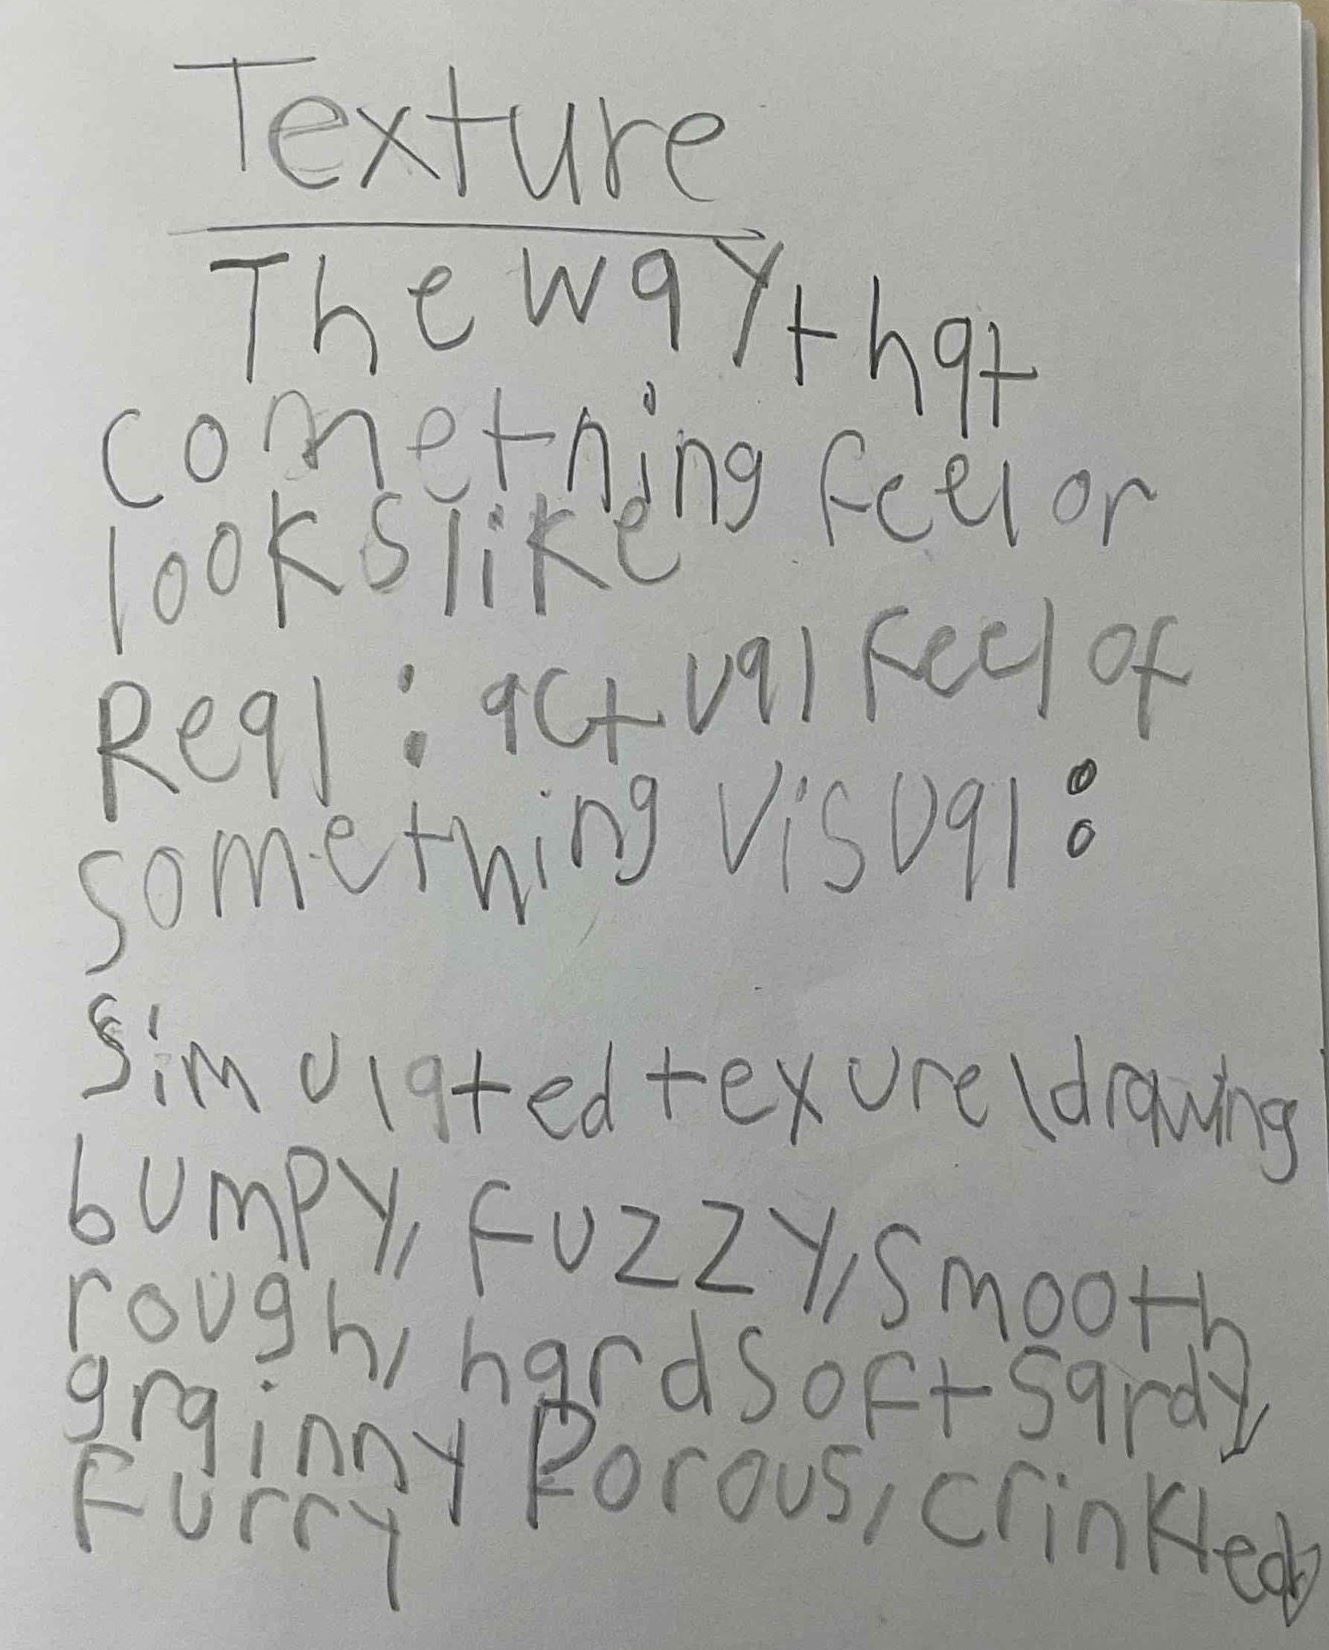 Texture
The way that
comething feel or
looks like
Real: actual feel of
something Visual:
Simulated texure\drawing
bumpy, fuzzy, smooth
rough, hard soft sardy,
grainny Porous, crinkled,
furry